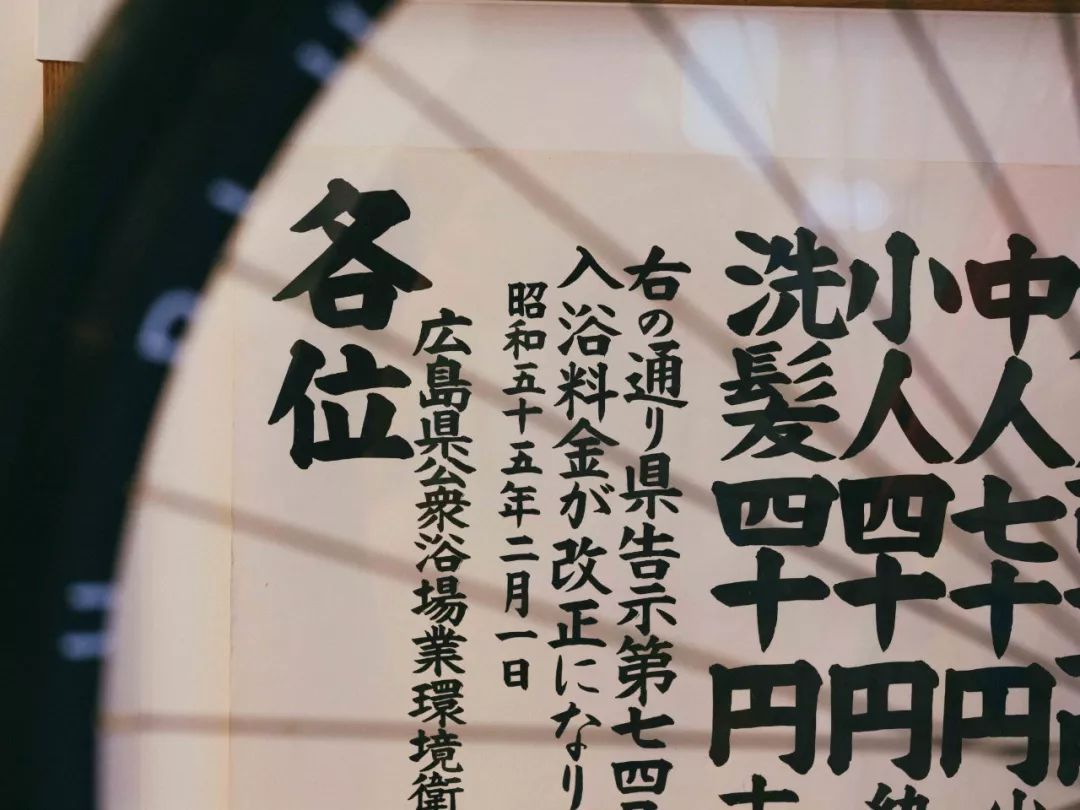 中人七十円
小人四十円
洗髪四十円
右の通り県告示第七四
入浴料金が改正になり
昭和五十五年二月一日
広島県公衆浴場業環境衛
各位